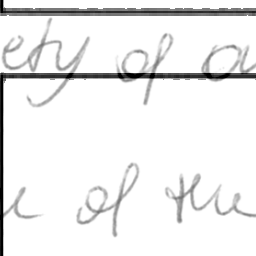 ety of a
of the